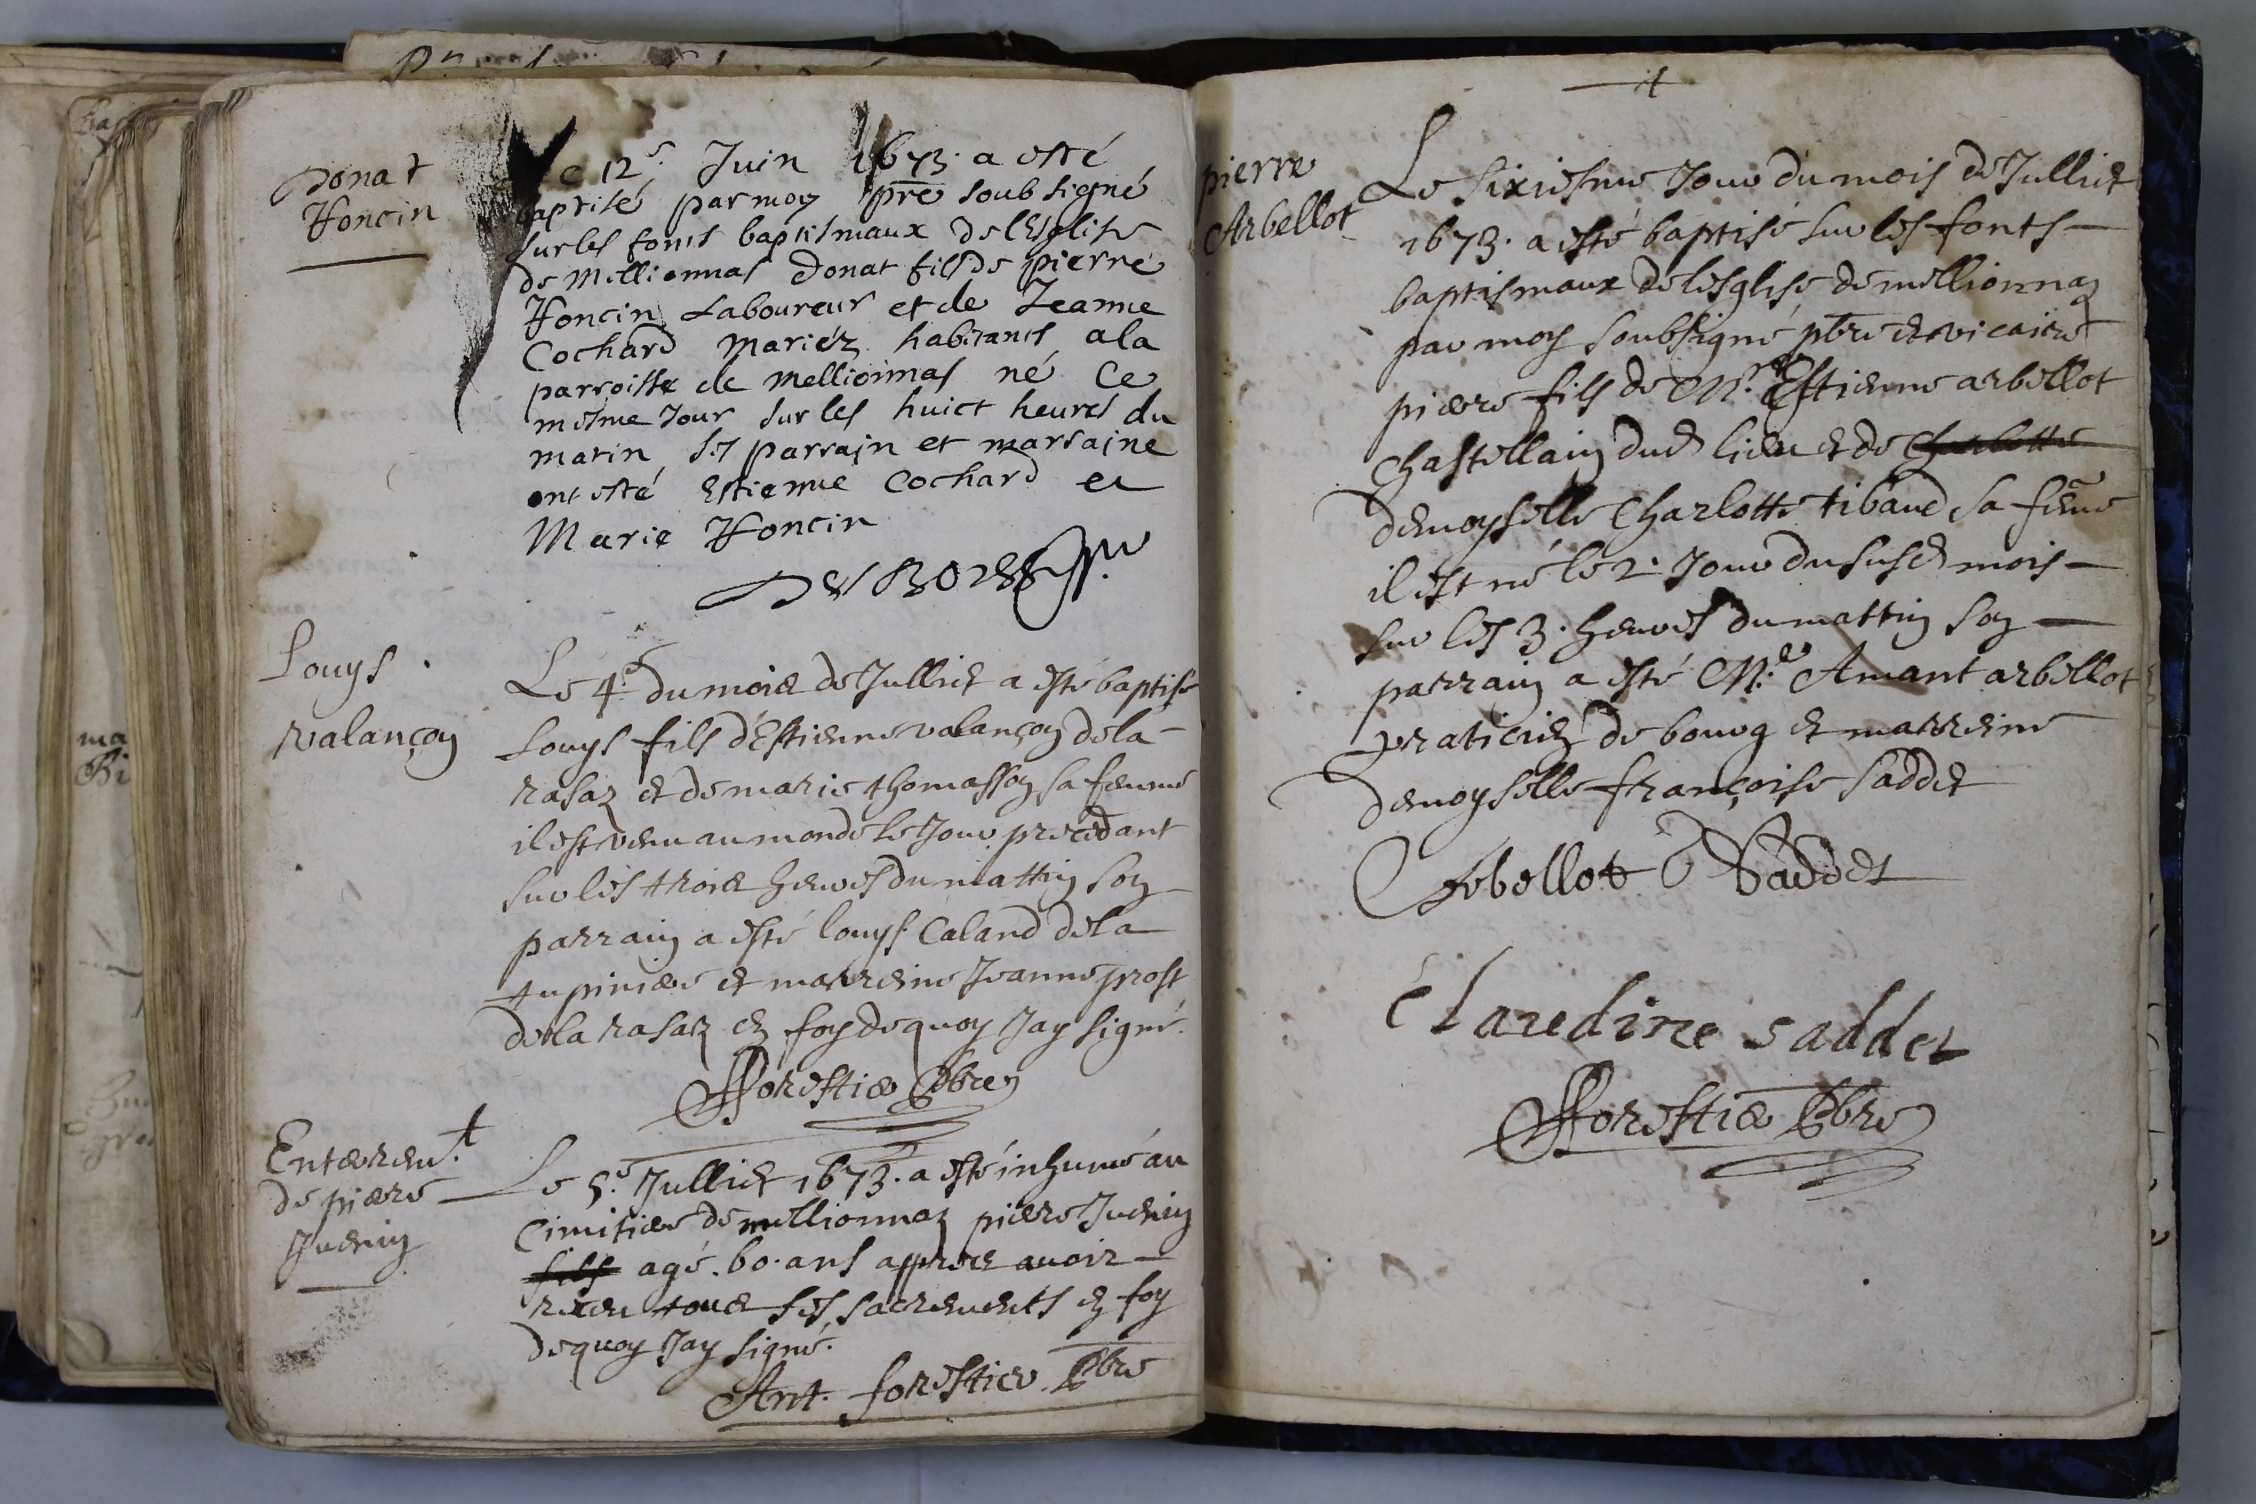 Donat
Honcin
Le 12e. Juin 1673. a esté
baptisé par moy pre soub signé
sur les fonts baptismaux de lEsglise
de Mellionnas Donat fils de pierre
Honcin Laboureur et de Jeanne
Cochard Mariéz habitants a la
parroisse de Mellionnas né Ce
mesme Jour sur les huict heures du
matin ses parrain et marraine
ont esté Estienne Cochard et
Marie Honcin
Louys
valançon
Le 4e. du mois de Julliet a esté baptisé
Louys fils d'Estienne valançon de la
rasaz et de marie thomasson sa femme
il est venu au monde le Jour precedant
sur les trois heures du mattin son
parrain a esté louys Caland de la
tupiniere et marreine Jeanne prost
de la rasaz en foy de quoy Jay signé.
Forestier Pbre
Enterem.t
de pierre
Juenin
Le 5e. Julliet 1673. a esté inhumé au
Cimitiere de mellionnaz pierre Juenin
fils agé. 60. ans appres avoir
receu tous ses sacrements en foy
de quoy Jay signé.
Ant. forestier Pbre
pierre
Arbellot
Le sixiesme Jour du mois de Julliet
1673. a esté baptisé sur les fonts
baptismaux de lesglise de mellionnaz
par moy soubsigné pbre et vicaire
pierre fils de Mr. Estienne arbellot
Chastellain dud lieu et de Charlotte
demoyselle Charlotte tibaud sa feme
il est né le 2. Jour du susd mois
sur les 3. heures du mattin son
parrain a esté Me. Amant arbellot
praticien de bourg et marreine
demoyselle françoise saddet
Arbellot Saddet
Claudine saddet
Forestier Pbre